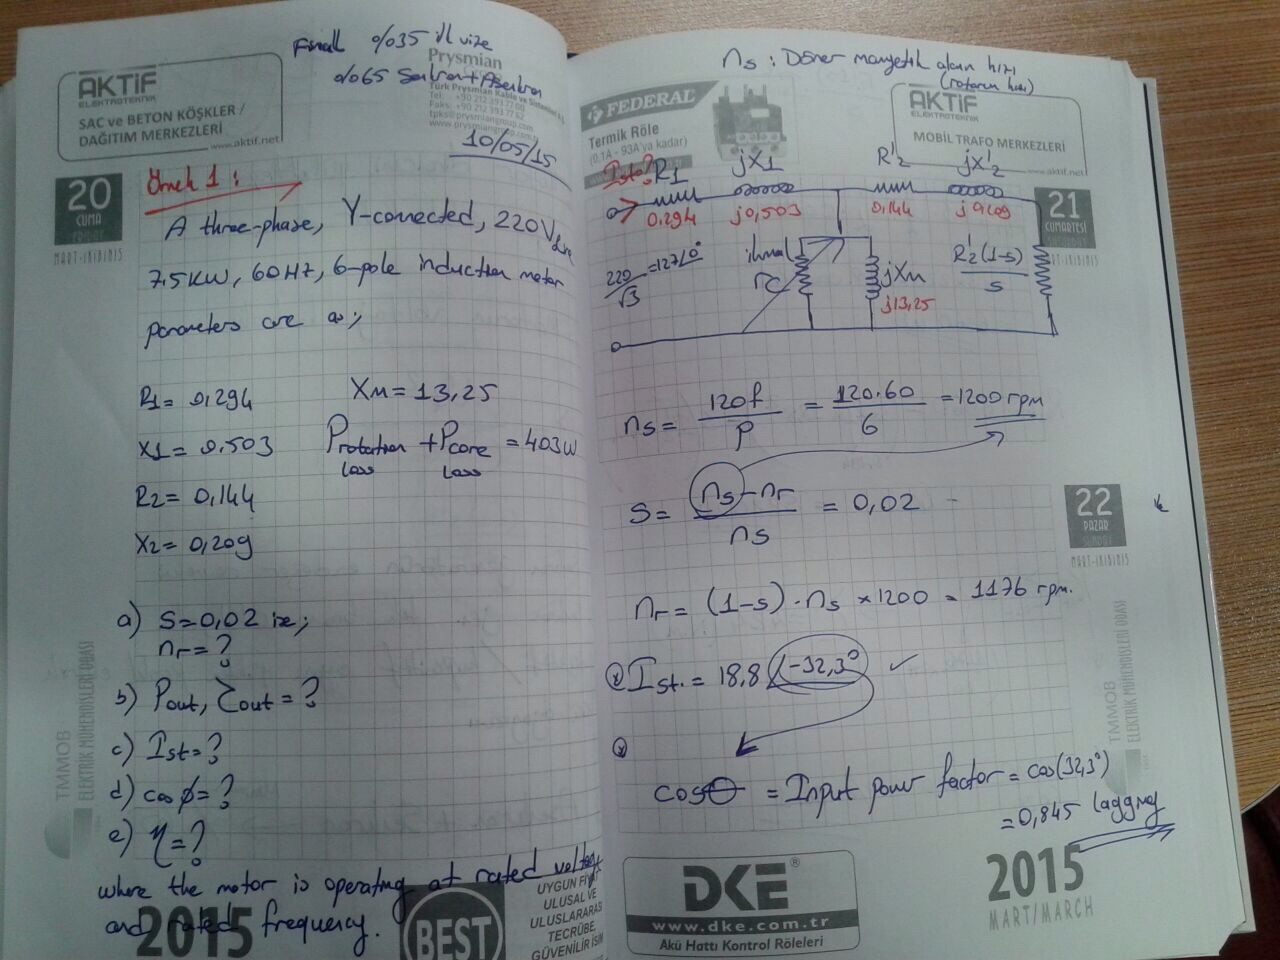 Final %35 ill vize
%65 Senkron + Asenkron
10/05/15
AKTİF
ELEKTROTEKNİK
SAC ve BETON KÖŞKLER /
DAĞITIM MERKEZLERİ
www.aktif.net
Prysmian
Türk Prysmian Kablo ve Sistemleri A.Ş.
Tel: +90 212 393 77 00
Faks: +90 212 393 77 62
tpks@prysmiangroup.com
www.prysmiangroup.com.tr
20
CUMA
MART-IRIDINIS
Örnek 1 :
A three-phase, Y-connected, 220 Vline
7,5KW, 60Hz, 6-pole induction motor
parameters are as;
R1 = 0,294 XM = 13,25
X1 = 0,503 Protation loss + Pcore loss = 403W
R2 = 0,144
X2 = 0,209
a) S=0,02 ise;
nr = ?
b) Pout, Tout = ?
c) Ist = ?
d) cos φ = ?
e) η = ?
where the motor is operating at rated voltage
and rated frequency.
TMMOB
ELEKTRİK MÜHENDİSLERİ ODASI
2015
BEST
UYGUN FİYAT
ULUSAL VE
ULUSLARARASI
TECRÜBE,
GÜVENİLİR İSİM
ns : Döner manyetik alan hızı
(rotorun hızı)
FEDERAL
Termik Röle
(0.1A - 93A'ya kadar)
AKTİF
ELEKTROTEKNİK
MOBİL TRAFO MERKEZLERİ
www.aktif.net
21
CUMARTESİ
Ist? R1 jX1 R'2 jX'2
0,294 j0,503 0,144 j0,209
220/√3 = 127∠0° ihmal rc jXM R'2(1-s)/s
j13,25
ns = 120f/P = 120.60/6 = 1200 rpm
S = ns-nr/ns = 0,02
22
PAZAR
MART-IRIDINIS
nr = (1-s) . ns x 1200 = 1176 rpm.
Ist. = 18,8 ∠-32,3° ✓
cosθ = Input power factor = cos(32,3°)
= 0,845 lagging
TMMOB
ELEKTRİK MÜHENDİSLERİ ODASI
DKE®
www.dke.com.tr
Akü Hattı Kontrol Röleleri
2015
MART/MARCH